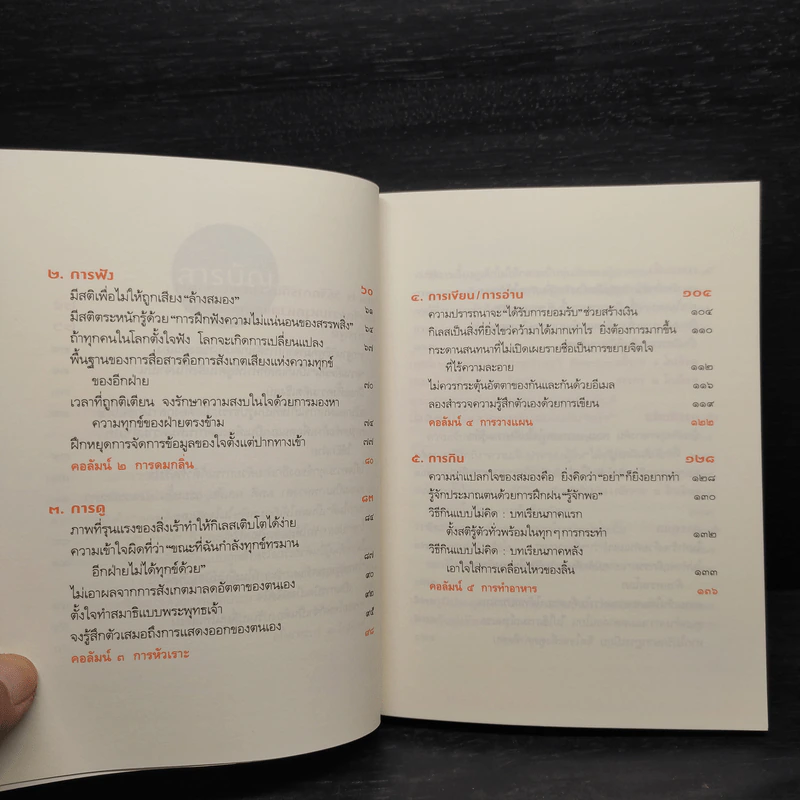 ๒. การฟัง ๖๐
มีสติเพื่อไม่ให้ถูกเสียง "ล้างสมอง" ๖๑
มีสติตระหนักรู้ด้วย "การฝึกฟังความไม่แน่นอนของสรรพสิ่ง" ๖๔
ถ้าทุกคนในโลกตั้งใจฟัง โลกจะเกิดการเปลี่ยนแปลง ๖๗
พื้นฐานของการสื่อสารคือการสังเกตเสียงแห่งความทุกข์
ของอีกฝ่าย ๗๐
เวลาที่ถูกติเตียน จงรักษาความสงบในใจด้วยการมองหา
ความทุกข์ของฝ่ายตรงข้าม ๗๔
ฝึกหยุดการจัดการข้อมูลของใจตั้งแต่ปากทางเข้า ๗๗
คอลัมน์ ๒ การดมกลิ่น ๘๐
๓. การดู ๘๓
ภาพที่รุนแรงของสิ่งเร้าทำให้กิเลสเติบโตได้ง่าย ๘๔
ความเข้าใจผิดที่ว่า "ขณะที่ฉันกำลังทุกข์ทรมาน
อีกฝ่ายไม่ได้ทุกข์ด้วย" ๘๗
ไม่เอาผลจากการสังเกตมาลดอัตตาของตนเอง ๙๐
ตั้งใจทำสมาธิแบบพระพุทธเจ้า ๙๒
จงรู้สึกตัวเสมอถึงการแสดงออกของตนเอง ๙๕
คอลัมน์ ๓ การหัวเราะ ๙๘
๔. การเขียน/การอ่าน ๑๐๔
ความปรารถนาจะ "ได้รับการยอมรับ" ช่วยสร้างเงิน ๑๐๔
กิเลสเป็นสิ่งที่ยิ่งไขว่คว้ามาได้มากเท่าไร ยิ่งต้องการมากขึ้น ๑๑๐
กระดานสนทนาที่ไม่เปิดเผยรายชื่อเป็นการขยายจิตใจ
ที่ไร้ความละอาย ๑๑๒
ไม่ควรกระตุ้นอัตตาของกันและกันด้วยอีเมล ๑๑๖
ลองสำรวจความรู้สึกตัวเองด้วยการเขียน ๑๑๙
คอลัมน์ ๔ การวางแผน ๑๒๒
๕. การกิน ๑๒๘
ความน่าแปลกใจของสมองคือ ยิ่งคิดว่า "อย่า" ก็ยิ่งอยากทำ ๑๒๘
รู้จักประมาณตนด้วยการฝึกฝน "รู้จักพอ" ๑๓๐
วิธีกินแบบไม่คิด : บทเรียนภาคแรก
ตั้งสติรู้ตัวทั่วพร้อมในทุกๆ การกระทำ ๑๓๒
วิธีกินแบบไม่คิด : บทเรียนภาคหลัง
เอาใจใส่การเคลื่อนไหวของลิ้น ๑๓๓
คอลัมน์ ๕ การทำอาหาร ๑๓๖